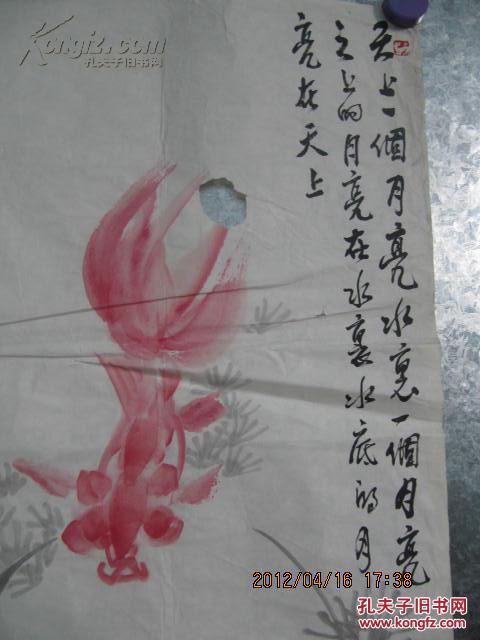 天上一個月亮水裏一個月亮
天上的月亮在水裏水底的月
亮在天上
Kongfz.com
孔夫子旧书网
2012/04/16 17:38
孔夫子旧书网
www.kongfz.com